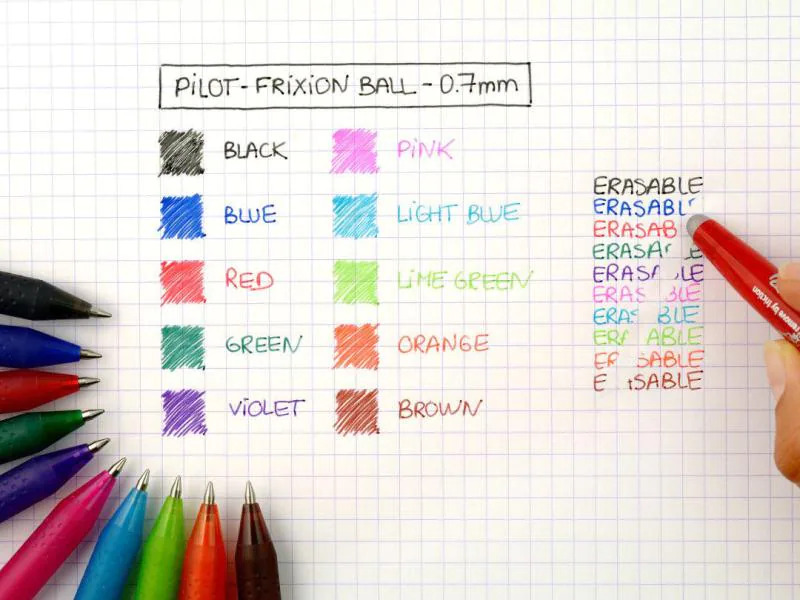 PILOT-FRIXION BALL-0.7mm
BLACK
BLUE
RED
GREEN
VIOLET
PINK
LIGHT BLUE
LIME GREEN
ORANGE
BROWN
ERASABLE
ERASABL
ERASAB
ERASA
ERAS LE
ERAS BLE
ERA BLE
ER ABLE
E SABLE
E SABLE
remove by friction